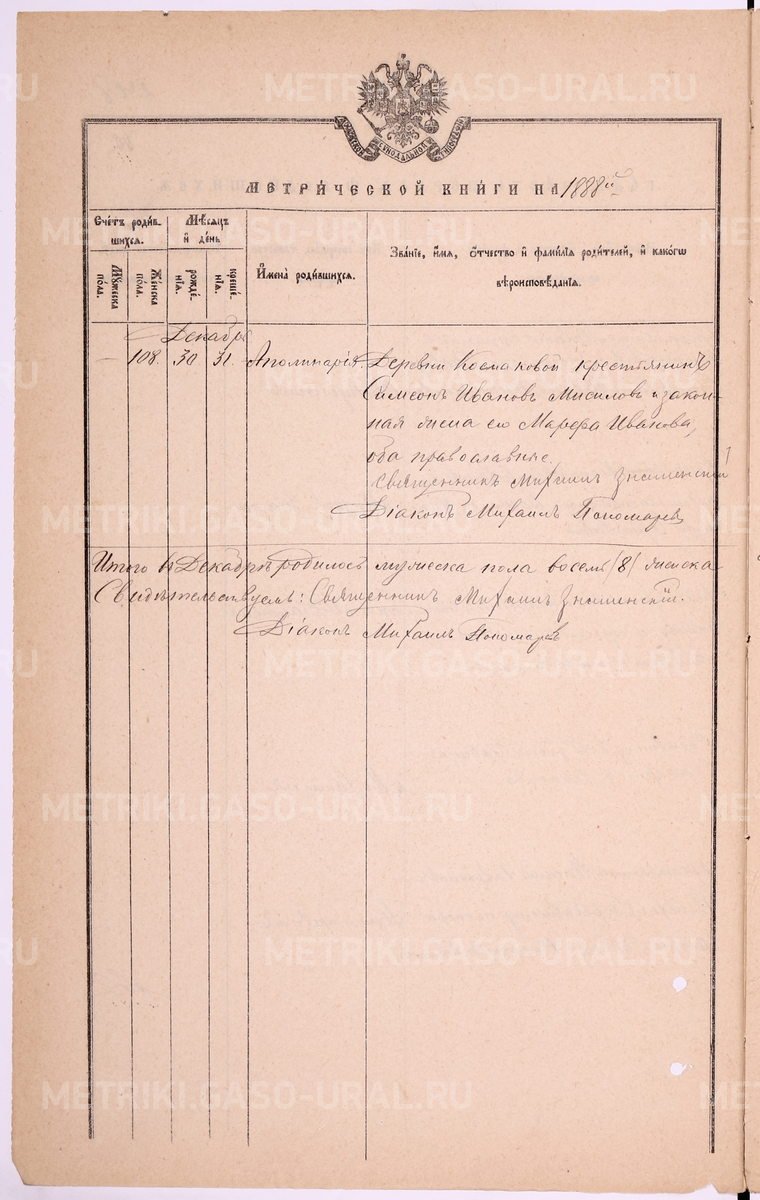 МЕТРИЧЕСКОЙ КНИГИ НА 1888й
Счетъ родившихся.
Мѣсяцъ и день
Имена родившихся.
Званіе, имя, отчество и фамилія родителей, и какого вѣроисповѣданія.
Мужеска пола.
Женска пола.
рожденія.
крещенія.
Декабрь
— 108. 30. 31. Аполинарія.
Деревни крестьянинъ
Симеонъ Ивановъ и закон-
ная жена его Марѳа Иванова,
оба православные.
Священникъ Михаилъ Знаменскій
Діаконъ Михаилъ Пономаревъ
Итого въ Декабрѣ родилось мужеска пола восемь /8/ женска
Свидѣтельствуемъ: Священникъ Михаилъ Знаменскій.
Діаконъ Михаилъ Пономаревъ
METRIKI.GASO-URAL.RU